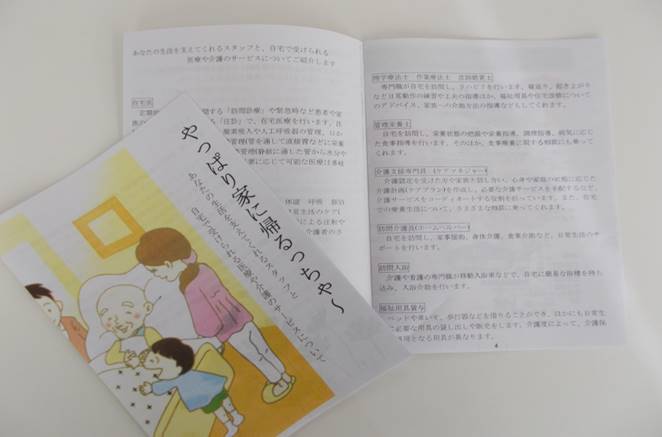 やっぱり家に帰るっちゃ～
あなたの生活を支えてくれるスタッフと
自宅で受けられる医療や介護のサービスについて
あなたの生活を支えてくれるスタッフと、自宅で受けられる
医療や介護のサービスについてご紹介します
在宅医
する「訪問診療」や緊急時など患者や家
「往診」で、在宅医療を行います。
酸素吸入や人工呼吸器の管理、口か
管理(管を通して直接胃などに栄養
管理(静脈に通した管から水分や
要に応じて可能な医療は
理学療法士 作業療法士 言語聴覚士
専門職が自宅を訪問し、リハビリを行います。寝返り、起き上がり
など日常動作の練習や工夫の指導ほか、福祉用具や住宅改修について
のアドバイス、家族への介助方法の指導などもしてくれます。
管理栄養士
自宅を訪問し、栄養状態の把握や栄養指導、調理指導、病気に応じ
た食事指導を行います。そのほか、食事療養に関する相談にも乗って
くれます。
介護支援専門員（ケアマネジャー）
介護認定を受けた方や家族と話し合い、心身や家庭の状態に応じた
介護計画(ケアプラン)を作成し、必要な介護サービスを手配するなど、
介護サービスをコーディネートする役割を担っています。また、在宅
での療養生活について、さまざまな相談に乗ってくれます。
訪問介護員(ホームヘルパー)
自宅を訪問し、家事援助、身体介護、食事介助など、日常生活のサ
ポートを行います。
訪問入浴
介護や看護の専門職が移動入浴車などで、自宅に簡易な浴槽を持ち
込み、入浴介助を行います。
福祉用具貸与
ベッドや車いす、歩行器などを借りることができ、ほかにも日常生
に必要な用具の貸し出しや販売をします。介護度によって、介護保
用となる用具が異なります。
4